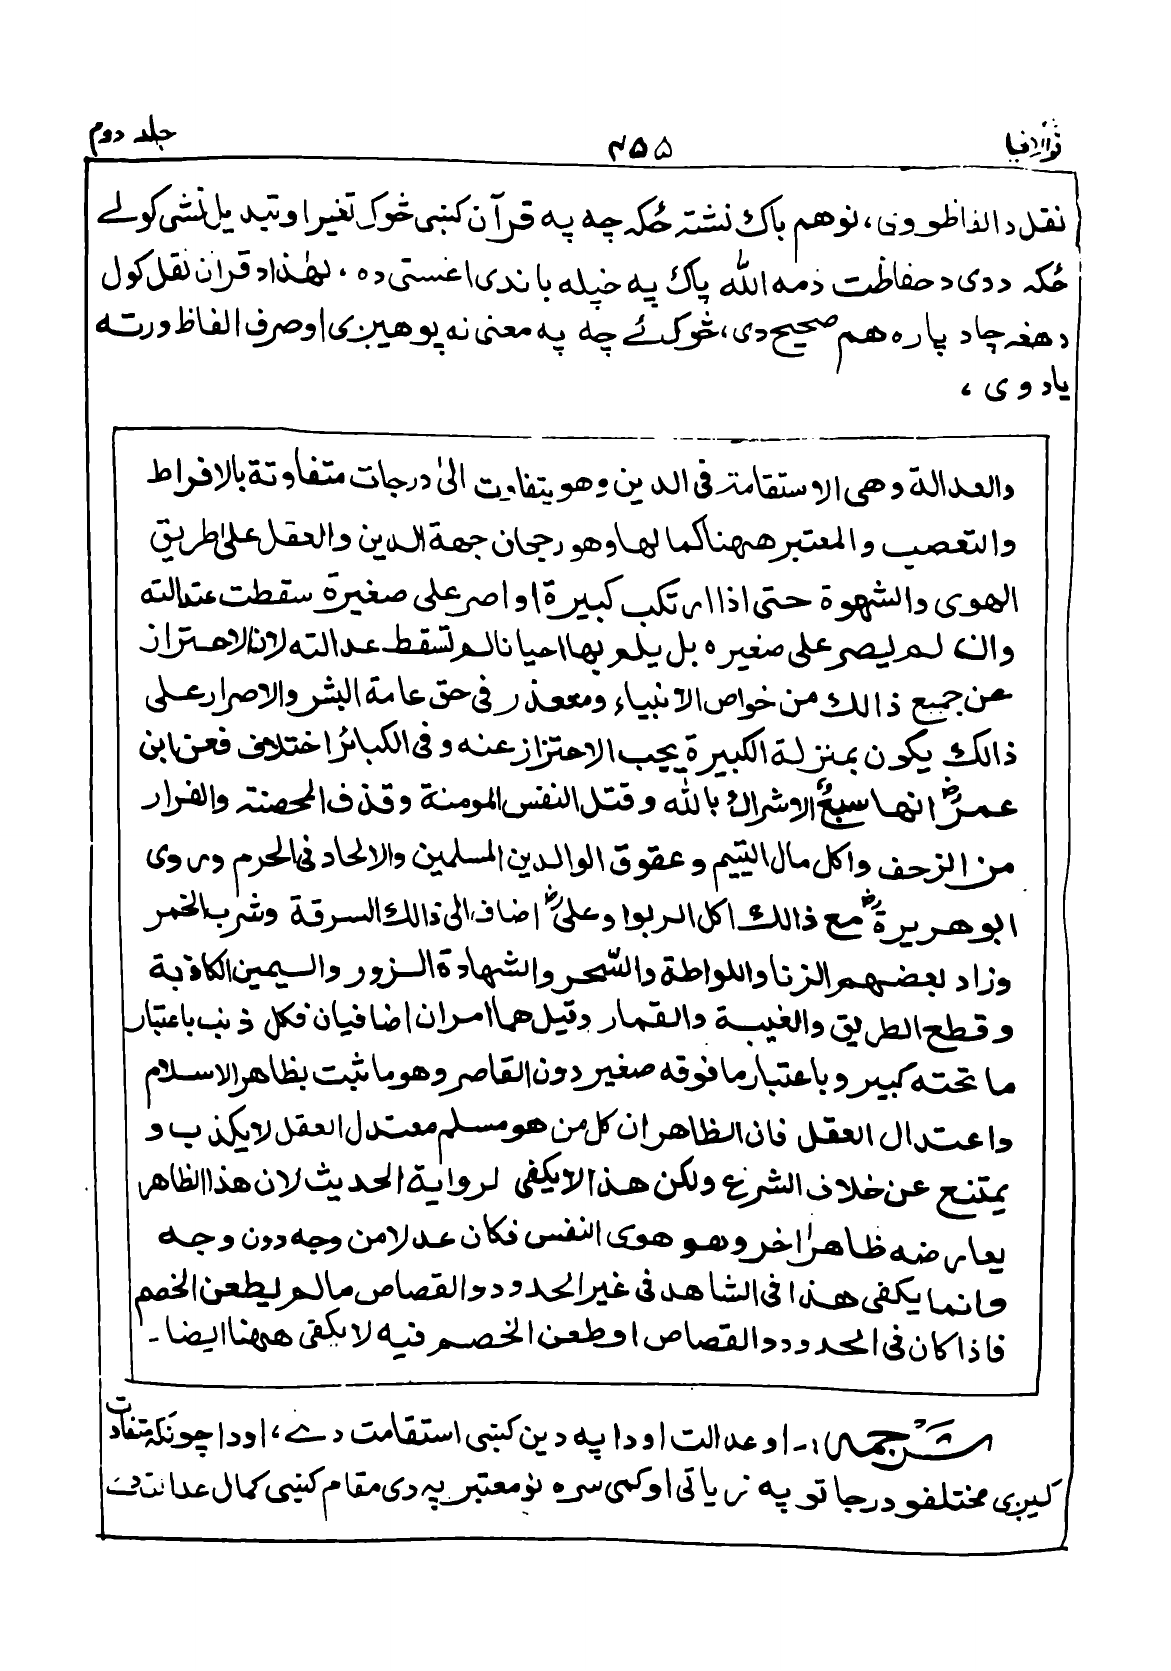 جلد دوم ۴۵۵
نقل د الفاظو وی، نو هم باک نشتہ ځکہ چہ پہ قرآن کښی څوک تغیر او تبدیل نشی کولے
ځکہ د دی د حفاظت ذمہ اللہ پاک پہ خپلہ باندی اغستی دہ، لھٰذا د قران نقل کول
د ھغہ چا د پارہ ھم صحیح دی، څوک ئے چہ پہ معنی نہ پوهیږی او صرف الفاظ ورتہ
یاد وی،
والعدالة وهی الاستقامة فی الدین وهو یتفاوت الیٰ درجات متفاوتة بالافراط
والتعصب والمعتبر ههنا کمالها وهو رجحان جهة الدین والعقل علی طریق
الهوی والشهوة حتی اذا ارتکب کبیرة او اصر علی صغیرة سقطت عدالته
وان لم یصر علی صغیره بل یلم بها احیانا لم تسقط عدالته لان الاحتراز
عن جمیع ذالک من خواص الانبیاء ومعذر فی حق عامة البشر والاصرار علی
ذالک یکون بمنزلة الکبیرة یجب الاحتراز عنه و فی الکبائر اختلاف فعن ابن
عمرؓ انها سبع الاشراک بالله و قتل النفس المومنة و قذف المحصنة والفرار
من الزحف واکل مال الیتیم و عقوق الوالدین المسلمین والالحاد فی الحرم وروی
ابوهریرةؓ مع ذالک اکل الربوا وعلیؓ اضاف الی ذالک السرقة وشرب الخمر
وزاد بعضهم الزنا واللواطة والسّحر والشهادة الزور والیمین الکاذبة
وقطع الطریق والغیبة والقمار وقیل هما امران اضافیان فکل ذنب باعتبار
ما تحته کبیر وباعتبار ما فوقه صغیر دون القاصر وهو ما ثبت بظاهر الاسلام
واعتدال العقل فان الظاهر ان کل من هو مسلم معتدل العقل لا یکذب و
یمتنع عن خلاف الشرع ولکن هذا لا یکفی لروایة الحدیث لان هذا الظاهر
یعارضه ظاهرا خر وهو هوی النفس فکان عدلا من وجه دون وجه
وانما یکفی هذا فی الشاهد فی غیر الحدود والقصاص مالم یطعن الخصم
فاذا کان فی الحدود والقصاص او طعن الخصم فیه لا یکفی ههنا ایضا۔
ترجمہ:۔ او عدالت او دا پہ دین کښی استقامت دے، او دا چونکہ متفاوت
کیږی مختلفو درجا تو پہ زیاتی او کمی سرہ نو معتبر پہ دی مقام کښی کمال عدالت